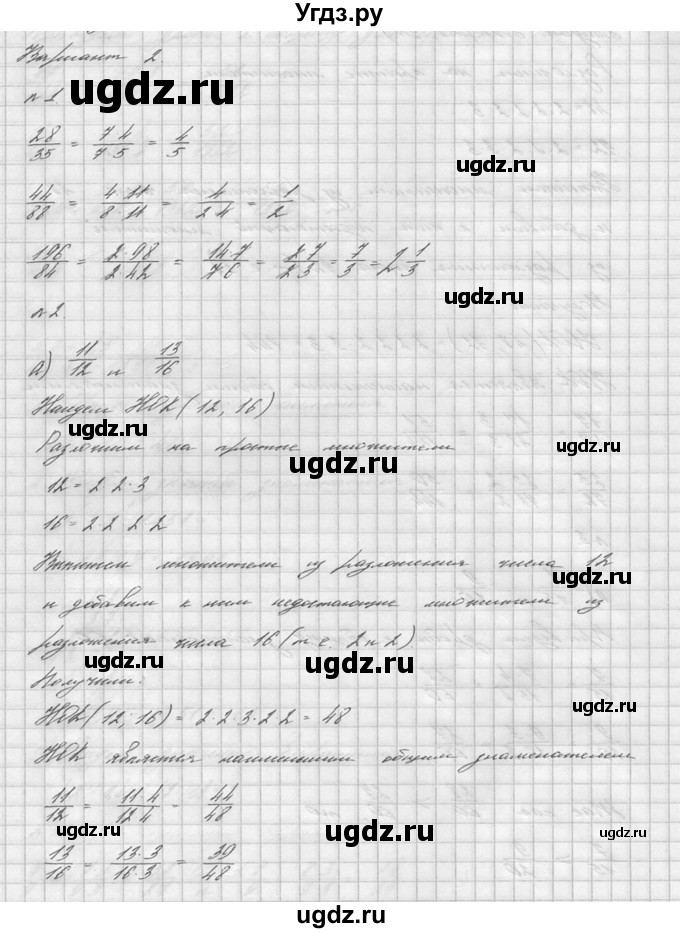 Угдз.ру
Вариант 2
ugdz.ru
n 1
28/35 = 7·4/7·5 = 4/5
ugdz.ru
44/88 = 4·11/8·11 = 4/2·4 = 1/2
ugdz.ru
196/84 = 2·98/2·42 = 14·7/7·6 = 2·7/2·3 = 7/3 = 2 1/3
ugdz.ru
n 2.
а) 11/12 и 13/16
Найдем НОК (12, 16)
ugdz.ru
Разложим на простые множители
ugdz.ru
ugdz.ru
12 = 2 2·3
16 = 2 2 2 2
Выпишем множители из разложения числа 12
ugdz.ru
и добавим к ним недостающие множители из
разложения числа 16 (т.е. 2 и 2)
ugdz.ru
Получили:
ugdz.ru
НОК (12; 16) = 2·2·3·2 2 = 48
НОК является наименьшим общим знаменателем
11/12 = 11·4/12·4 = 44/48
ugdz.ru
ugdz.ru
ugdz.ru
13/16 = 13·3/16·3 = 39/48
ugdz.ru